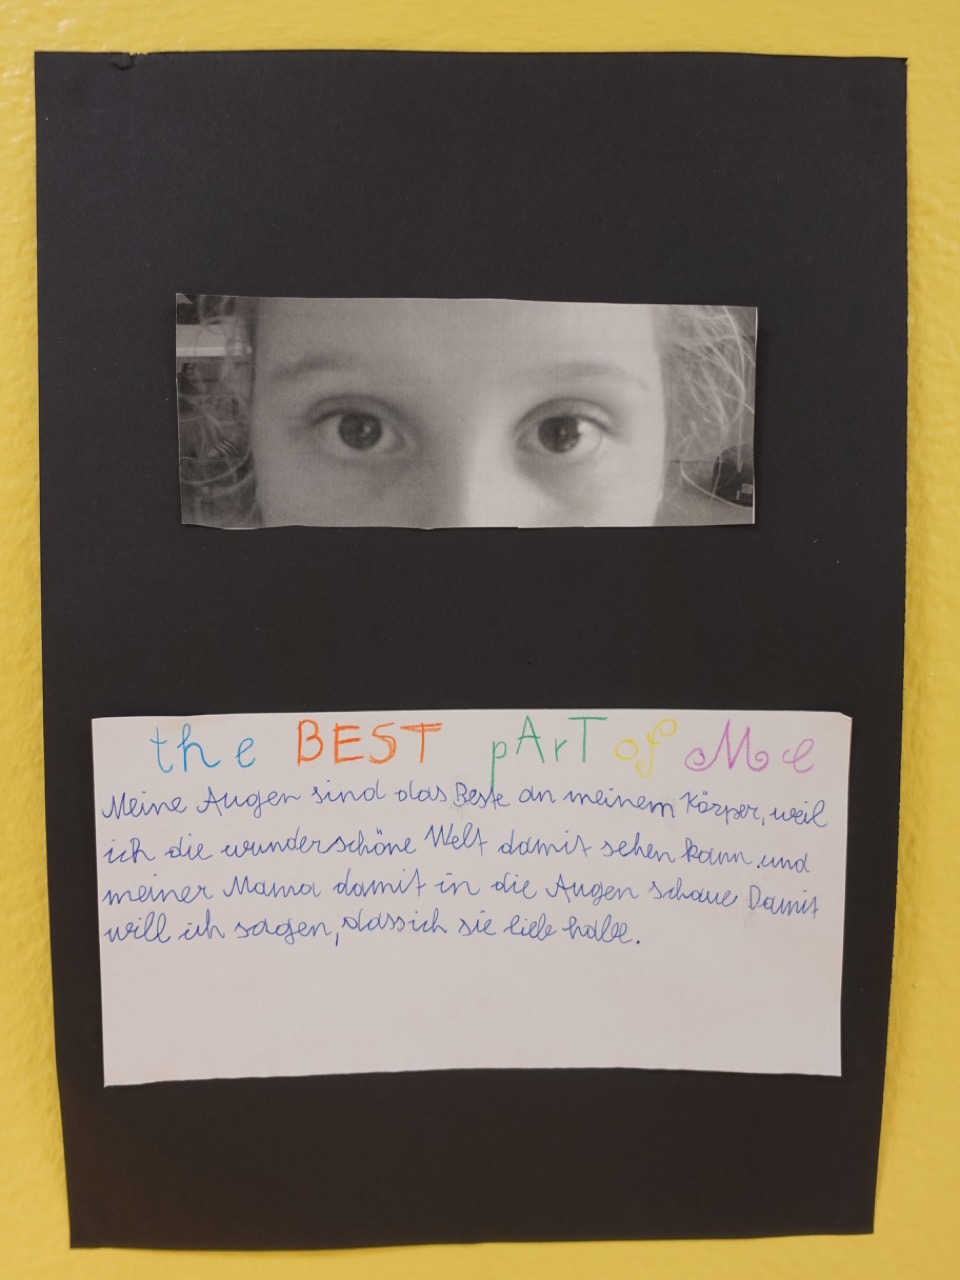 the BEST pArT of Me
Meine Augen sind das Beste an meinem Körper, weil
ich die wunderschöne Welt damit sehen kann. und
meiner Mama damit in die Augen schaue Damit
will ich sagen, dass ich sie lieb habe.